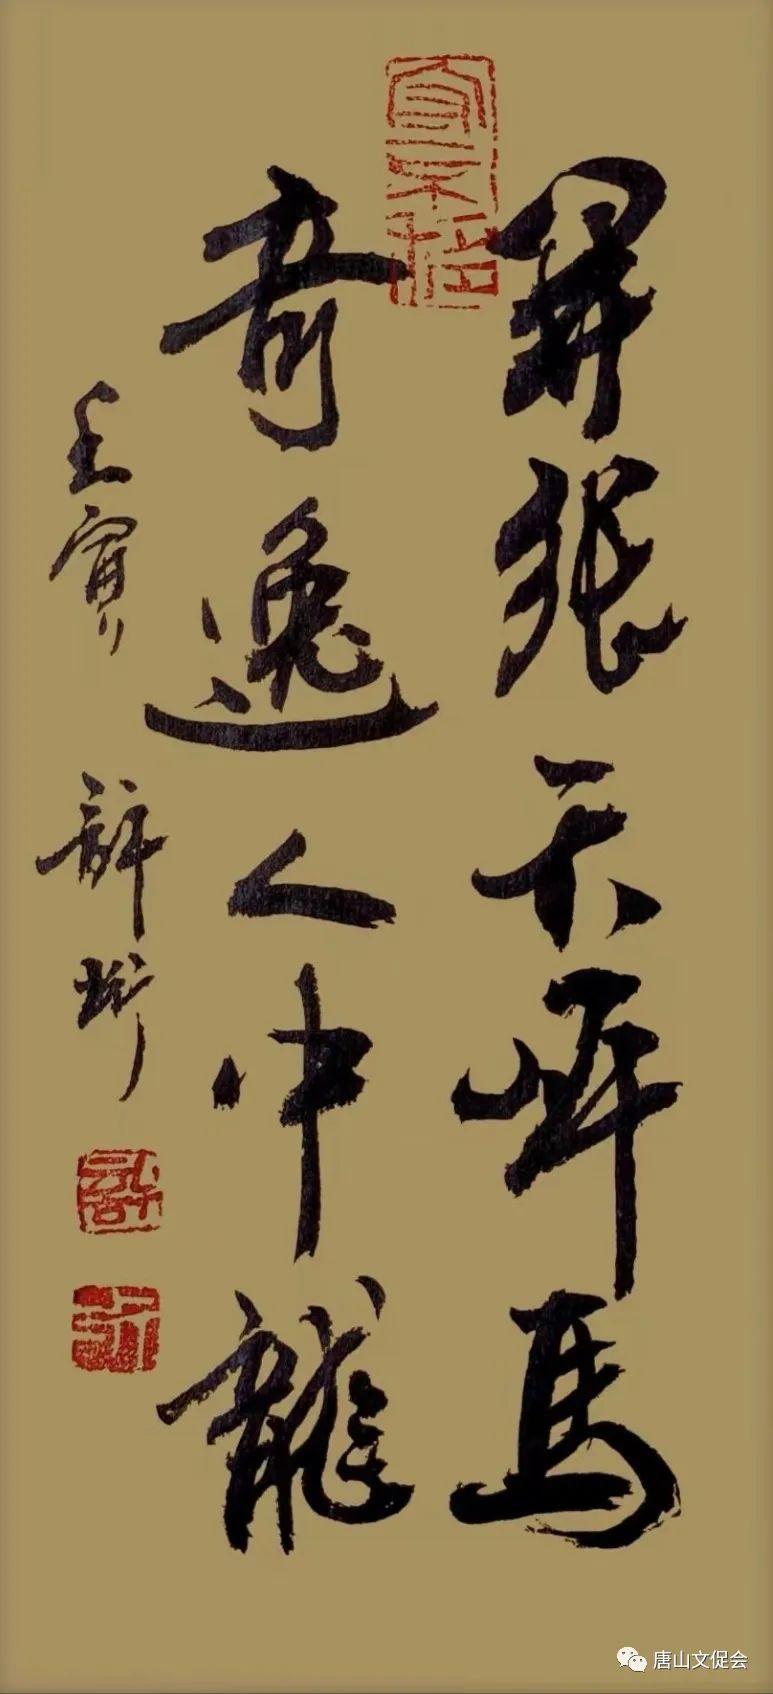 開張天岸馬
奇逸人中龍
壬寅 許
許
唐山文促会